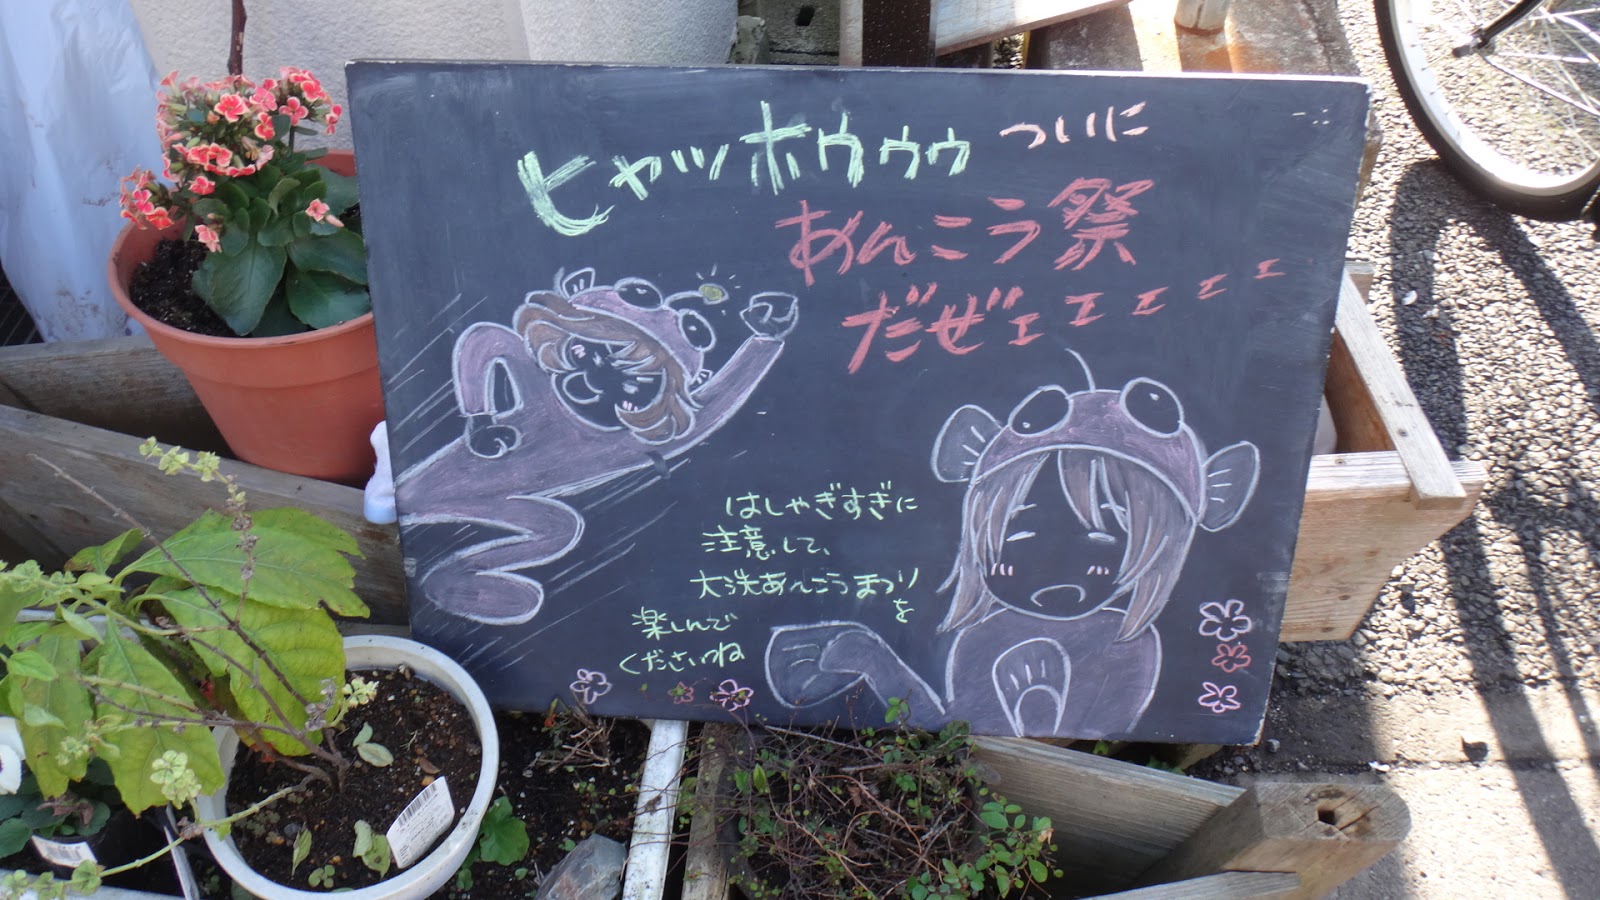 ヒャッホウゥゥ ついに
あんこう祭
だぜェェェェェ
はしゃぎすぎに
注意して、
大洗あんこうまつり
を
楽しんで
くださいね